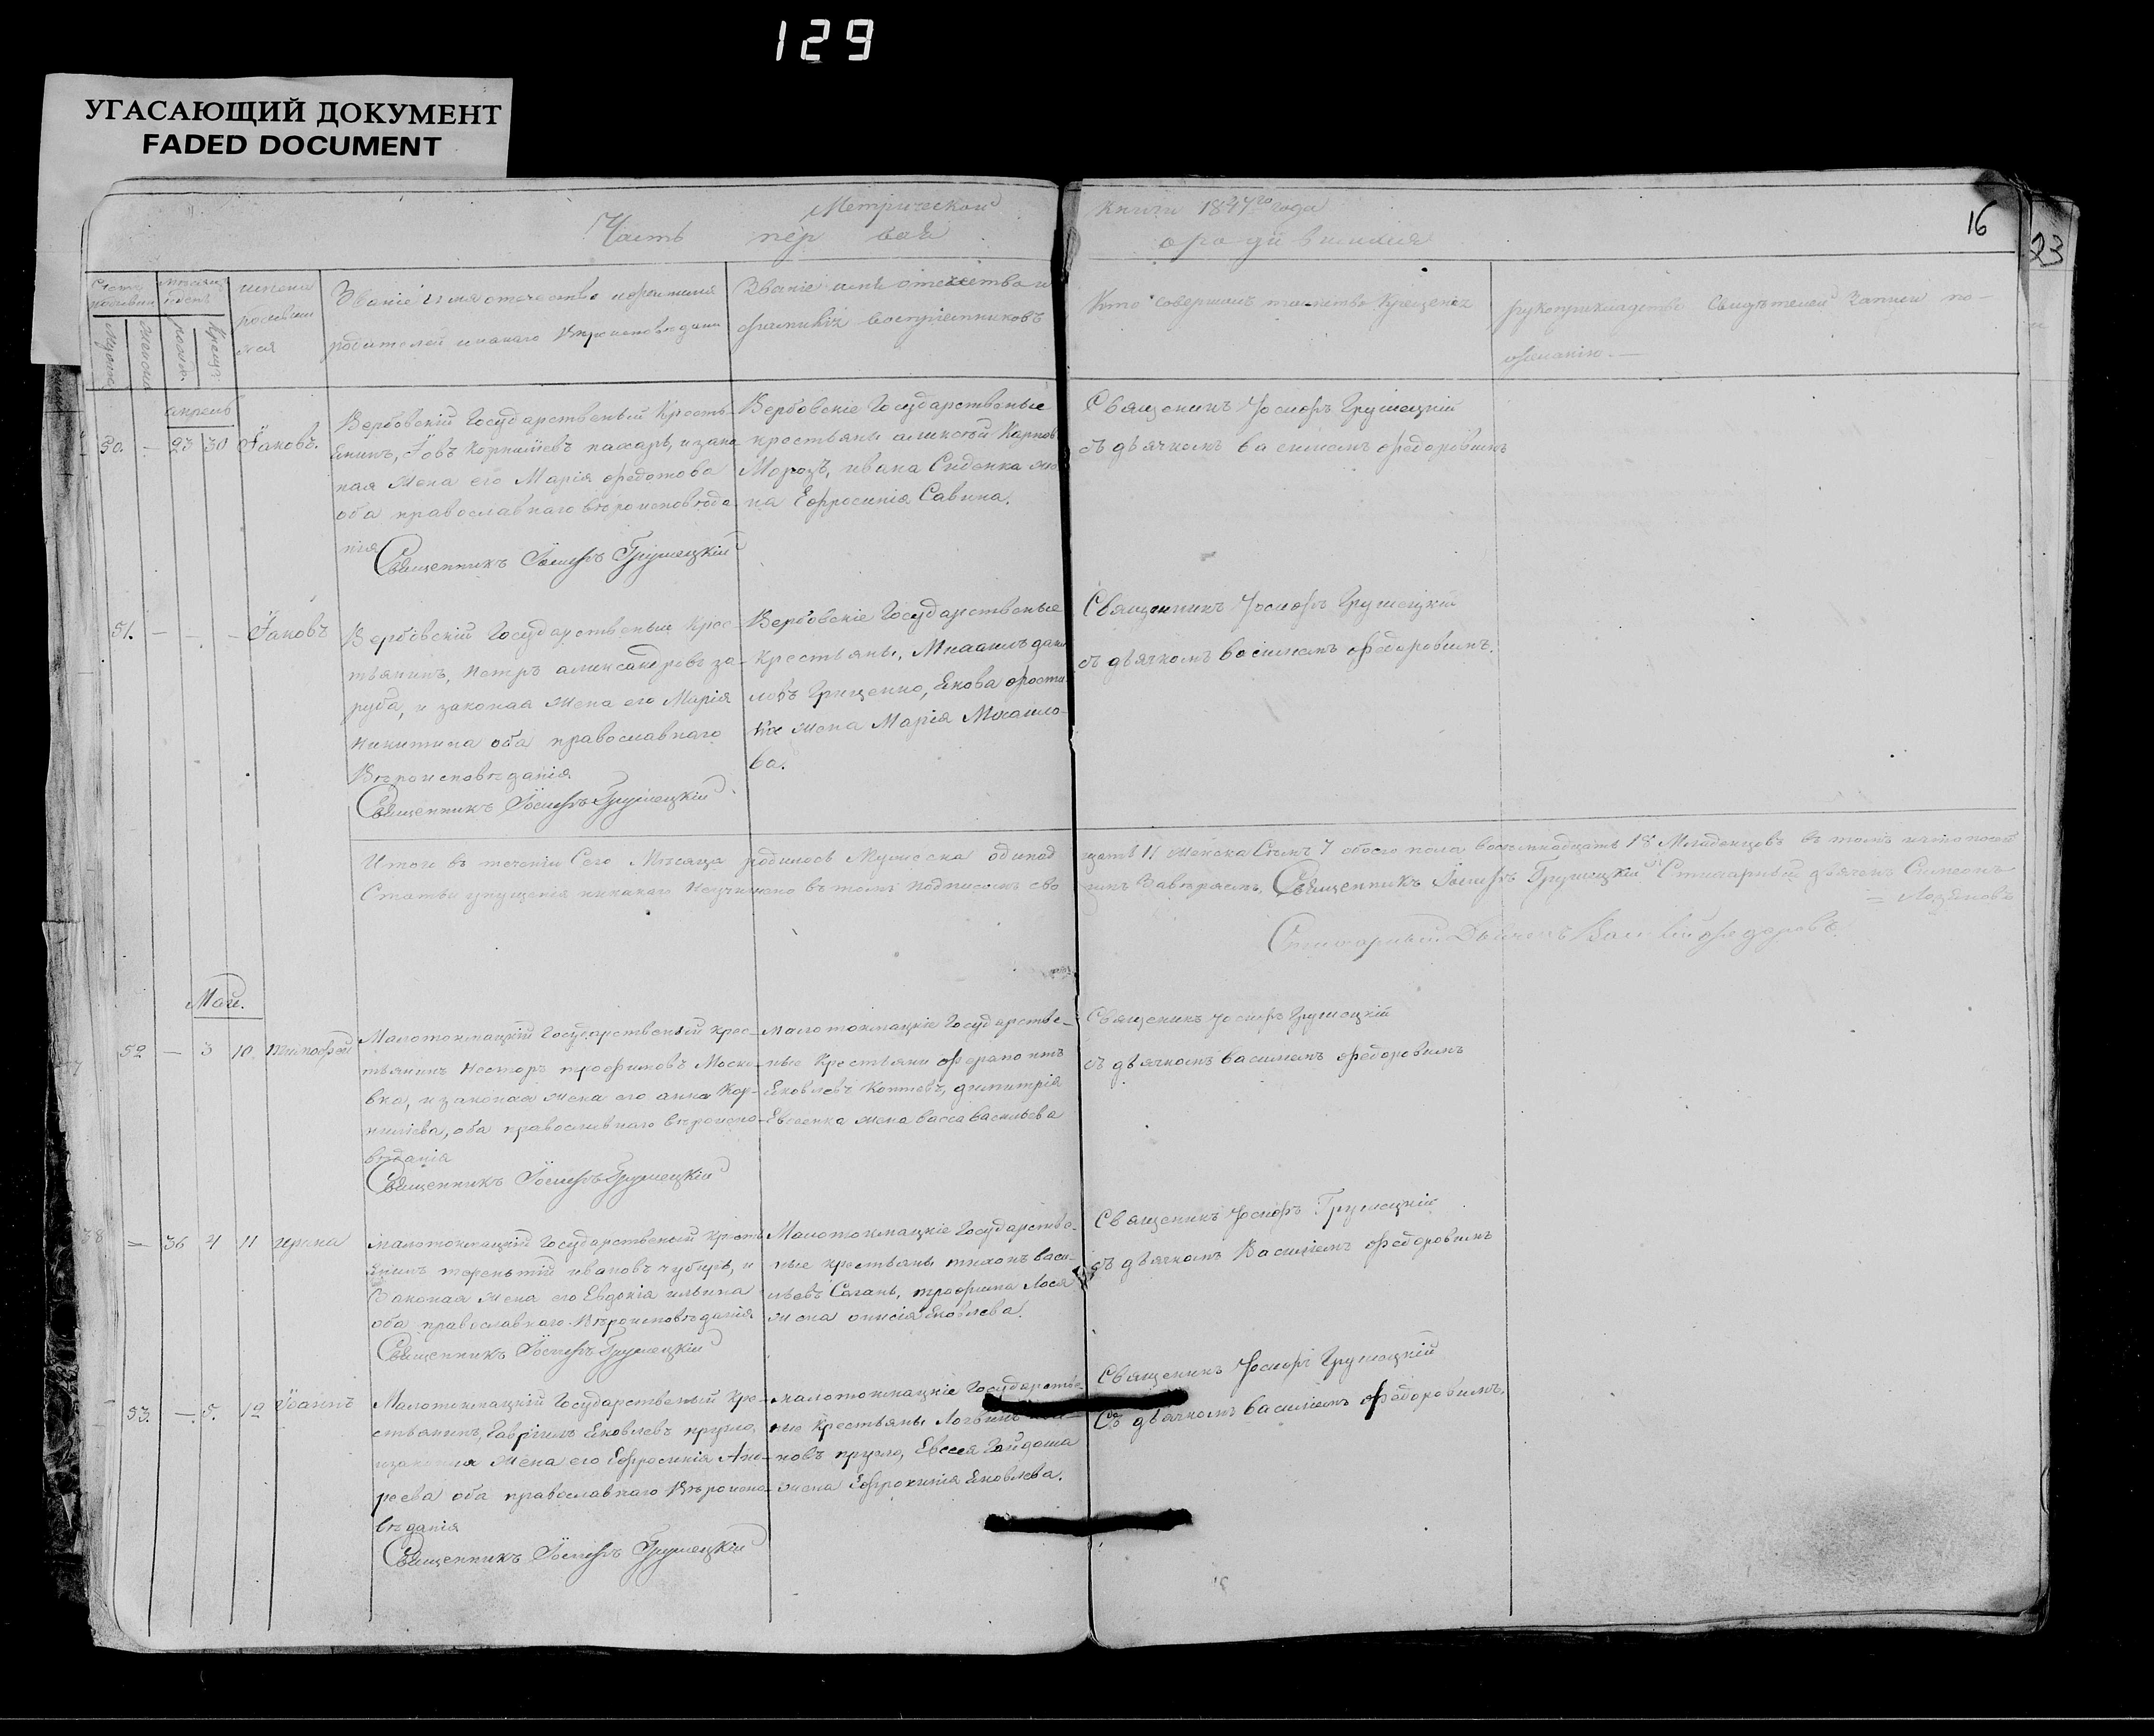 129
УГАСАЮЩИЙ ДОКУМЕНТ
FADED DOCUMENT
Метрической книги 1847го года
16
23
Часть пер вая о родившихся
Званіе имя отечество и фамилія
родителей и какаго Вѣроисповѣданія
Званіе имя отечество и
фамилія восприемниковъ
Кто совершилъ таинство Крещенія
рукоприкладство Свидѣтелей записи по
желанію.
апрель
50. — 23 30 Іаковъ.
Вербовскій Государственый Кресть-
янинъ, Іовъ Корнилїевъ пахарь, и зако
ная жена его Марія федотова
оба православнаго вѣроисповѣда
нія
Священникъ Іосифъ Грушецкій
Вербовскіе Государственые
крестьяны алексѣй Карпов
Морозъ, ивана Сиденка же
на Ефросинія Савина.
Священикъ Іосифъ Грушецкій
съ дьячкомъ василіемъ федоровимъ
51. — — — Іаковъ
Вербовскій Государственый крес
тьянинъ, Петръ александровъ за-
руба, и законая жена его Марія
Никитина оба православнаго
Вѣроисповѣданія
Священникъ Іосифъ Грушецкій
Вербовскіе Государственые
крестьяны, Михаилъ дани
ловъ Грищенко, Якова
жена Марія Михаило-
ва.
Священникъ Іосифъ Грушецкій
съ дьячкомъ василіемъ федоровимъ.
Итого въ теченіи Сего Мѣсяца родилось Мужеска одинад цать 11 женска Семь 7 обоего пола восемнадцать 18 Младенцовъ въ томъ что по сей
Статьи упущенія никакаго неучинено въ томъ подписомъ сво имъ Завѣряемъ. Священникъ Іосифъ Грушецкій Стихарный дьячекъ Симеонъ
Стихарный Дьячекъ Василій Федоровъ.
Маи.
52 — 3 10. тимофей
Малотокмацкій Государственый крес-
тьянинъ Несторъ трофимовъ Моско-
вка, и законая жена его анна Кор-
нилієва, оба православнаго вѣроиспо-
вѣданія
Священникъ Іосифъ Грушецкій
Малотокмацкіе Государстве-
ные Крестьяни ферапонтъ
Яковлевъ Коптевъ, димитрія
Евсеенка жена васса васильева
Священикъ Іосифъ Грушецкій
съ дьячкомъ василіемъ федоровимъ
— 36 4 11 ирина
малотокмацкій Государственый Кресть
янинъ терентій ивановъ чубиръ, и
Законая жена его Евдокія ильина
оба православнаго Вѣроисповѣданія
Священникъ Іосифъ Грушецкій
Малотокмацкіе Государстве-
ные крестьяны тихонъ васи-
льевъ Саганъ, трофима Лося
жена онисія Яковлева.
Священикъ Іосифъ Грушецкій
съ дьячкомъ Василіемъ федоровимъ
53. — 5. 12 Іоаннъ
Малотокмацкій Государственый Кре-
стьянинъ, Гавріилъ Яковлевъ пругло,
и законая жена его Ефросинія Анд
реева оба православнаго Вѣроиспо-
вѣданія
Священникъ Іосифъ Грушецкій
малотокмацкіе Государстве-
ные Крестьяны Логвинъ
новъ пругло, Евсея Гайдаша
жена Ефросинія Яковлева.
Священикъ Іосифъ Грушецкій
Съ дьячкомъ василіемъ федоровимъ.